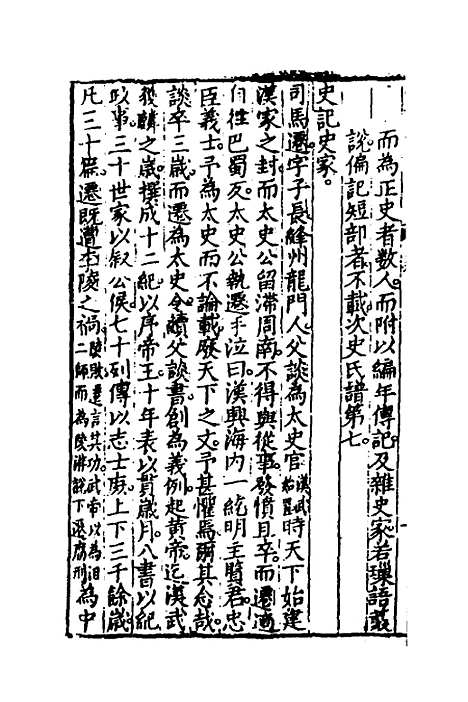 而為正史者數人而附以編年傳記及雜史家若璅語叢
說偏記短部者不載次史氏譜第七
史記史家
司馬遷字子長絳州龍門人父談為太史官漢武始置時天下始建
漢家之封而太史公留滯周南不得與從事發憤且卒而遷適
自往巴蜀反太史公執遷手泣曰漢興海內一統明主賢君忠
臣義士予為太史而不論載廢天下之文予甚懼焉爾其念哉
談卒三歲而遷為太史令續父談書創為義例起黃帝迄漢武
獲麟之歲撰成十二紀以序帝王十年表以貫歲月八書以紀
政事三十世家以叙公侯七十列傳以志士庶上下三千餘歲
凡三十篇遷既遭李陵之禍陵敗遷言其功武帝以為沮二師而為陵游說下遷腐刑為中